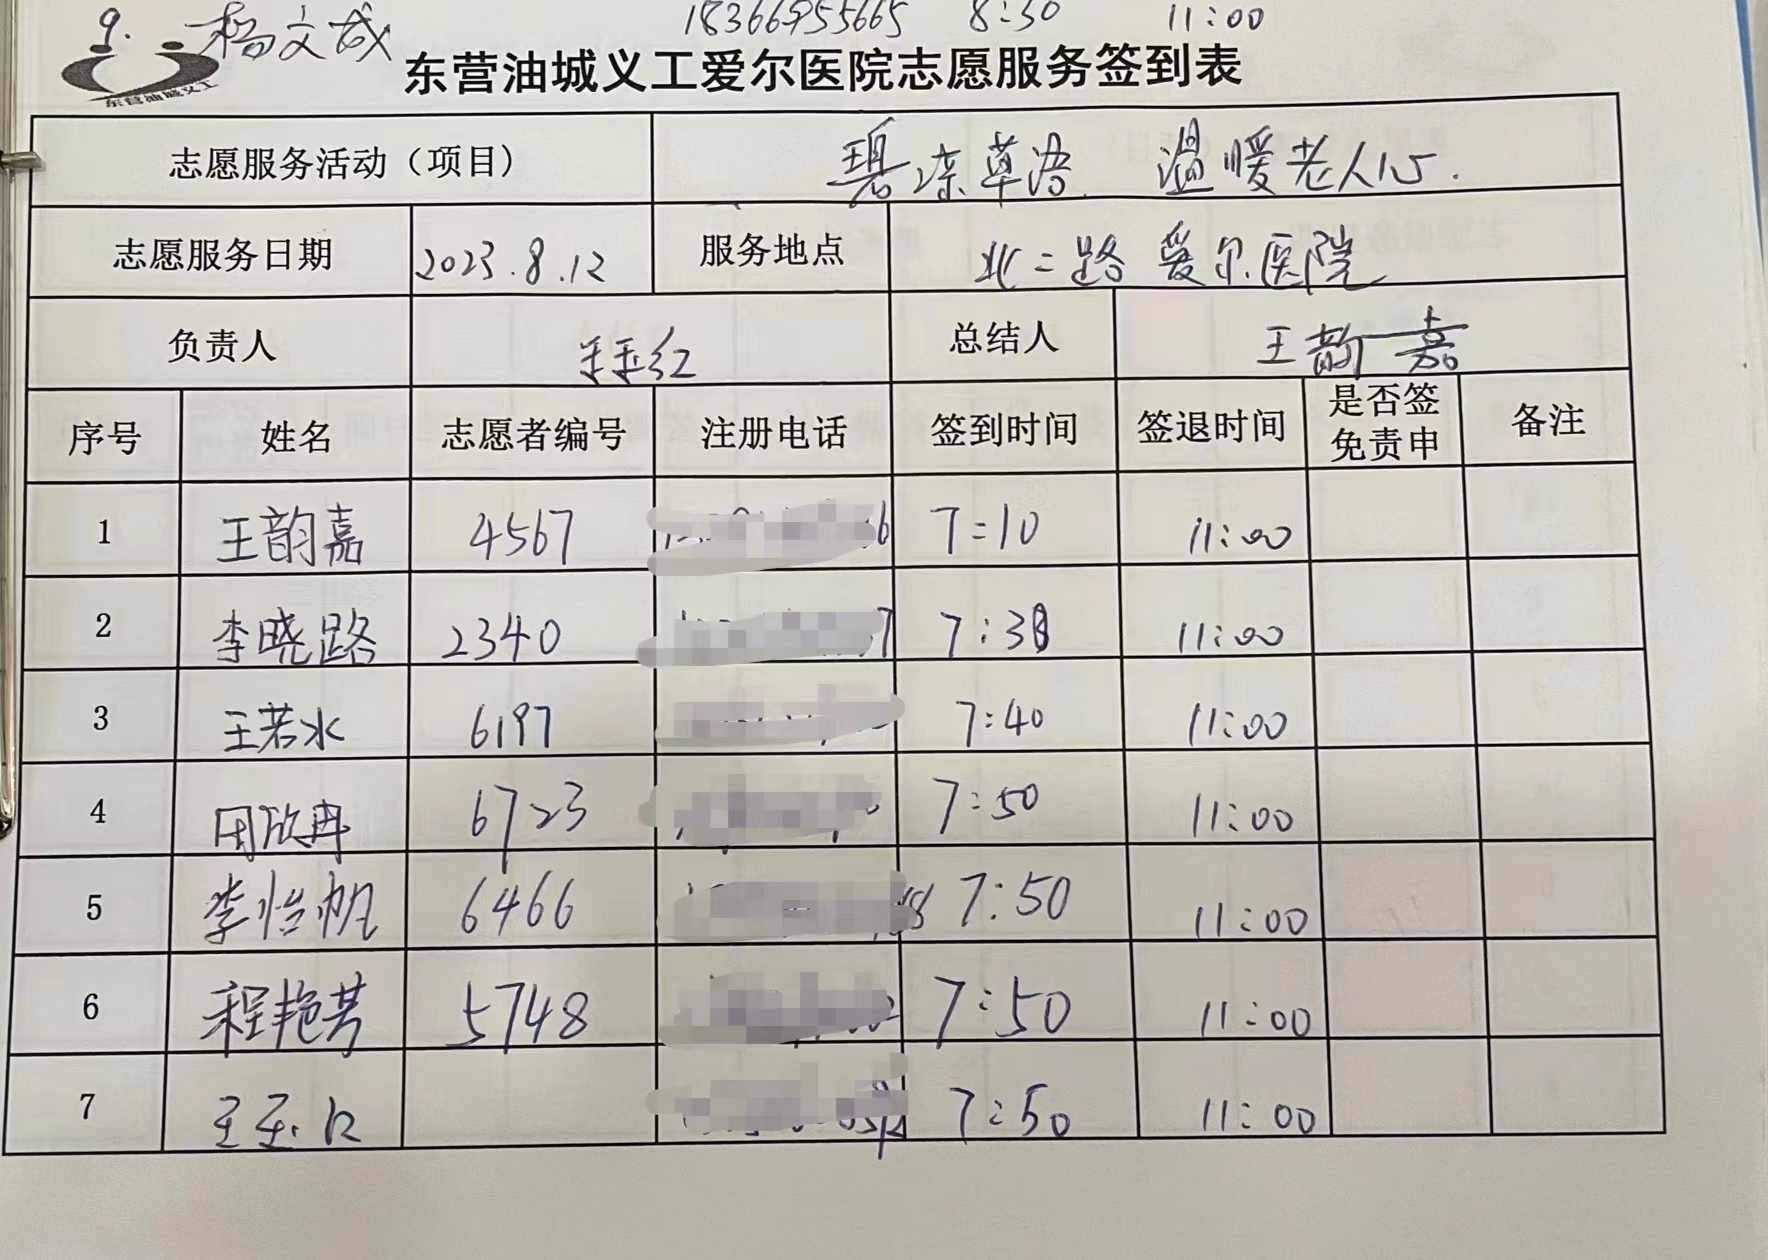 9. 杨文成 18366955665 8:30 11:00
东营油城义工
东营油城义工爱尔医院志愿服务签到表
志愿服务活动（项目） 温暖老人心.
志愿服务日期 2023.8.12 服务地点 北二路 爱尔医院
负责人 总结人 王韵嘉
序号 姓名 志愿者编号 注册电话 签到时间 签退时间 是否签免责申 备注
1 王韵嘉 4567 7:10 11:00
2 李晓路 2340 7:30 11:00
3 王若水 6197 7:40 11:00
4 周欣冉 6723 7:50 11:00
5 李怡帆 6466 7:50 11:00
6 程艳芳 5748 7:50 11:00
7 7:50 11:00